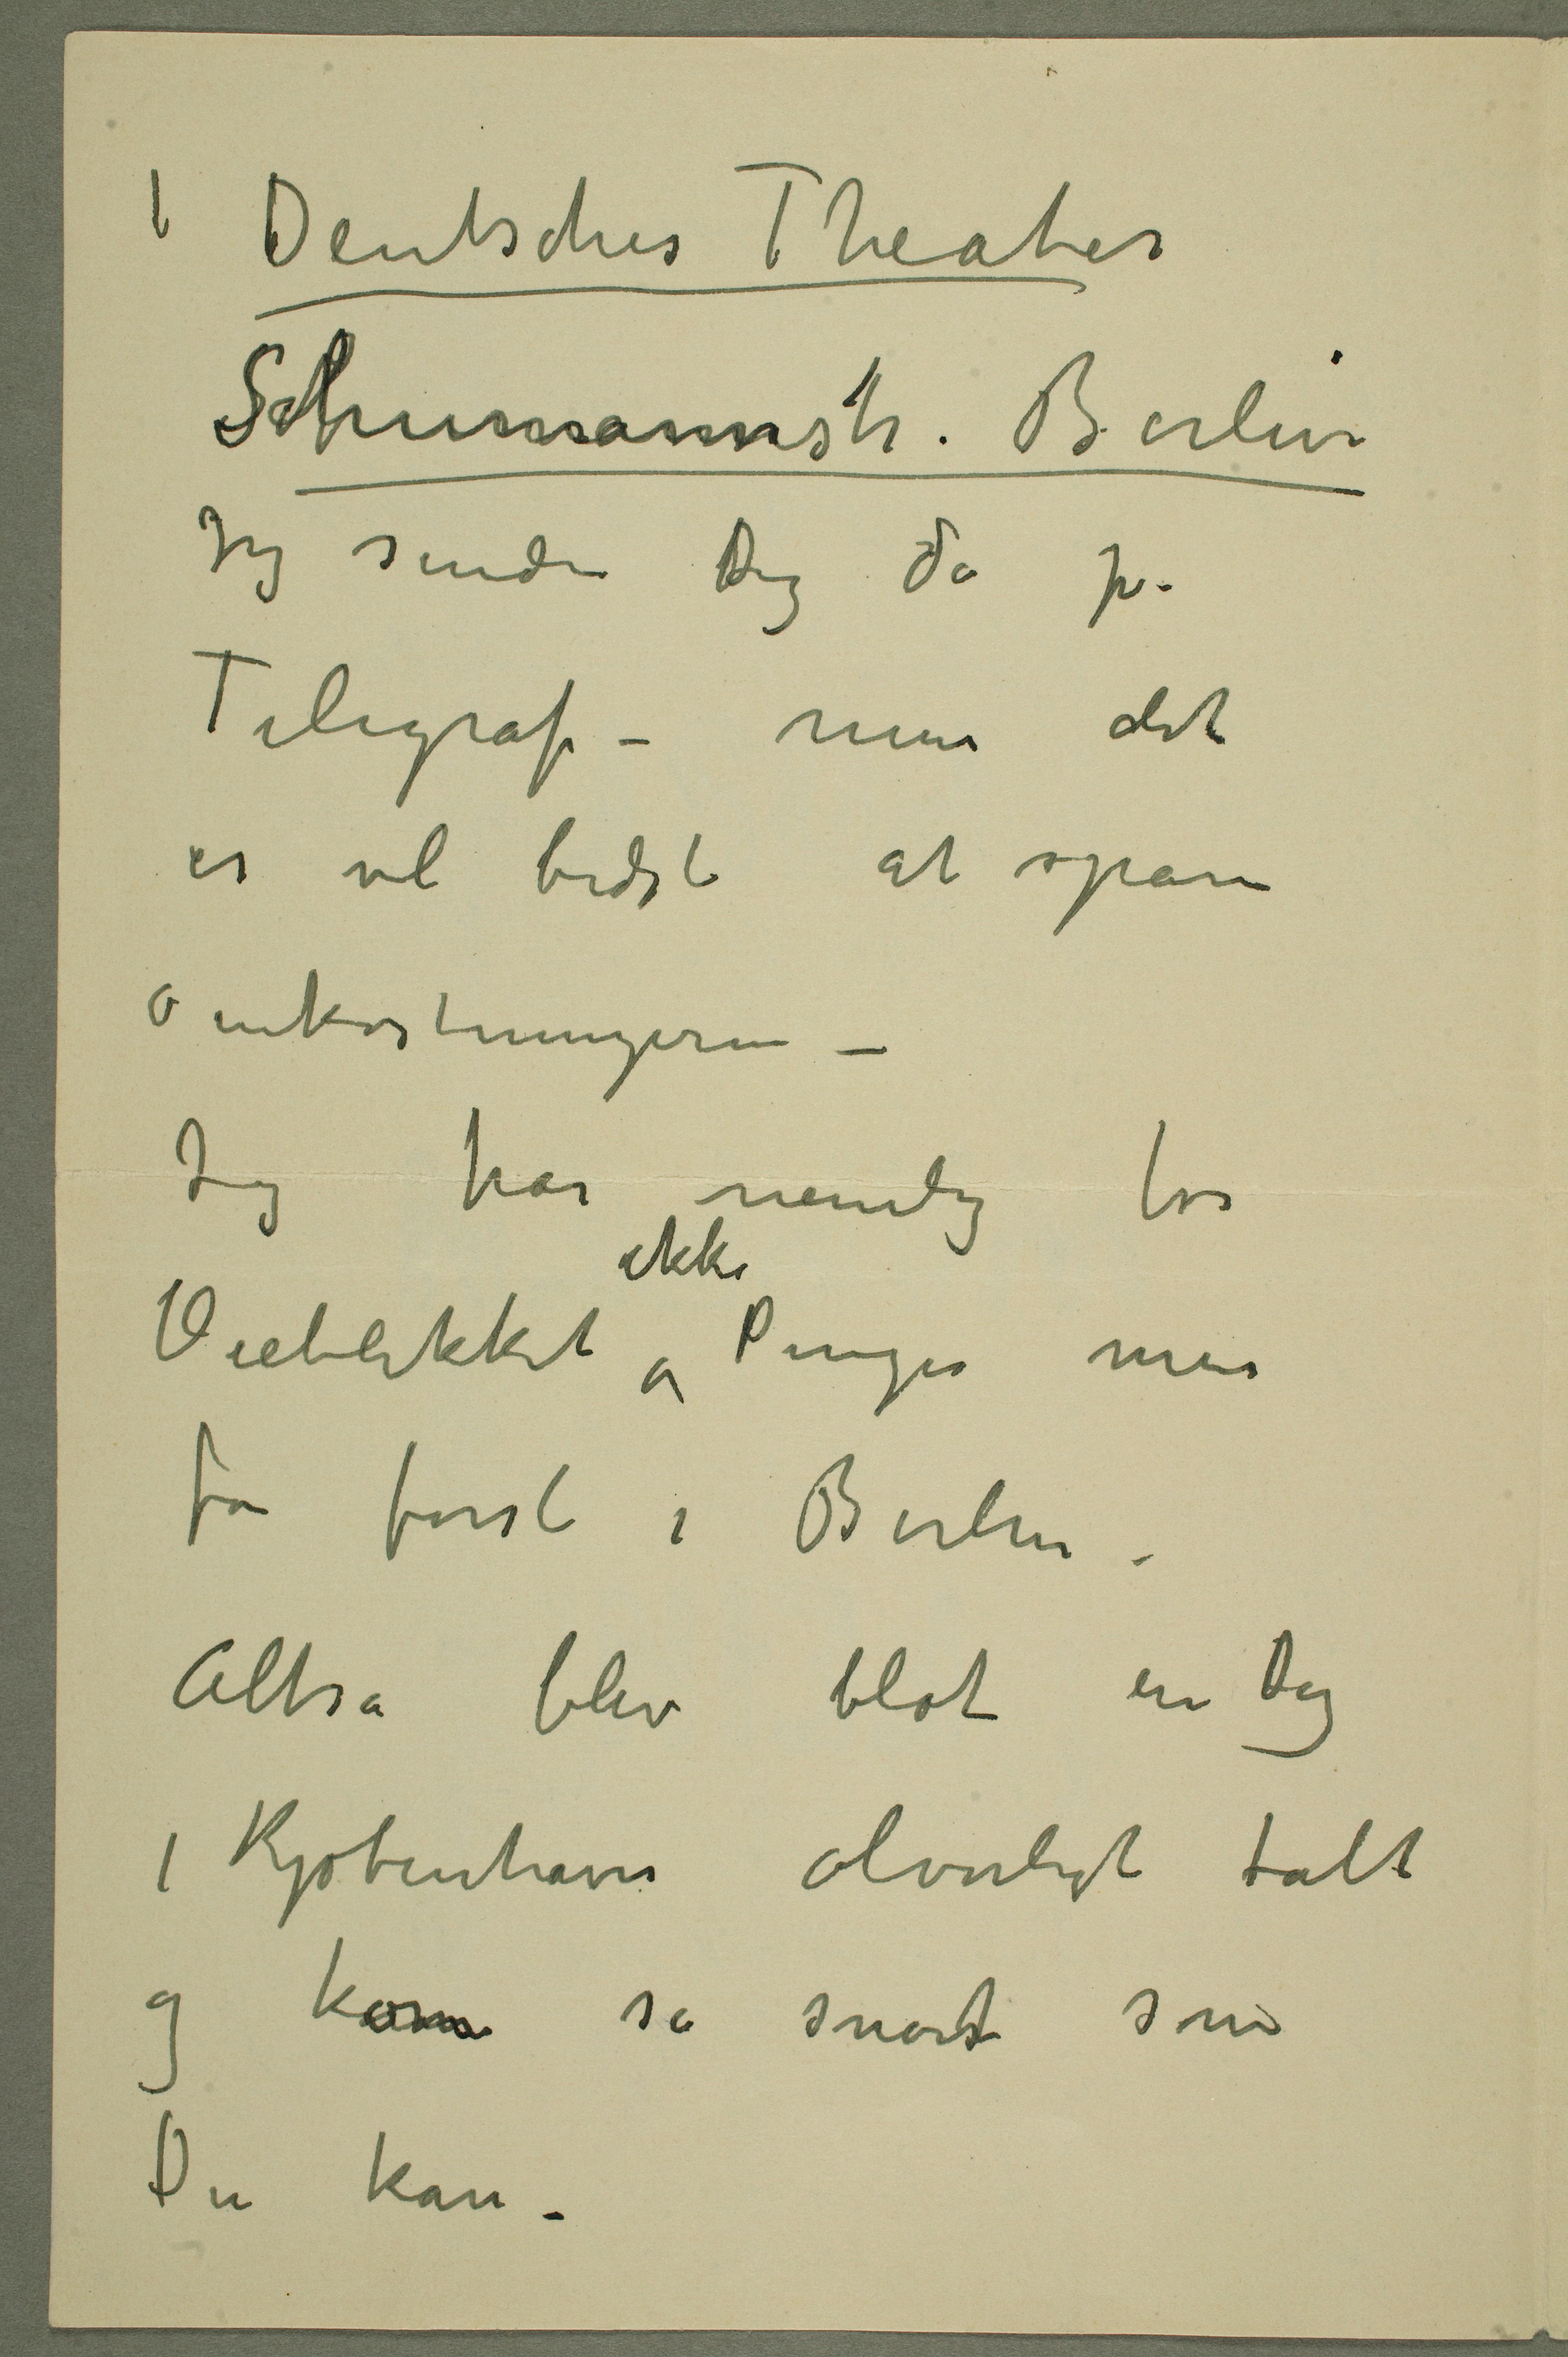 I Deutsches Theater
Schumannstr. Berlin
Jeg sender Dig da pr.
Telegraf – men det
er vel bedst at spare
omkostningerne –
Jeg har nemlig for
ikke
Øieblikket Penger men
får først i Berlin.
Altså blev blot en Dag
i Kjøbenhavn alvorligt talt
og kom så snart som
Du kan –